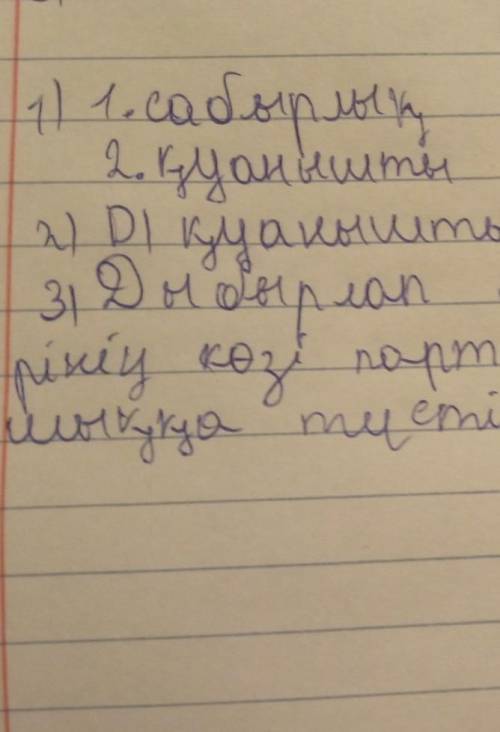 1) 1. сабырлық
2. қуанышты
2) D) қуанышты
3) Дыбырлап
рінің көзі парт
шыққа түсті